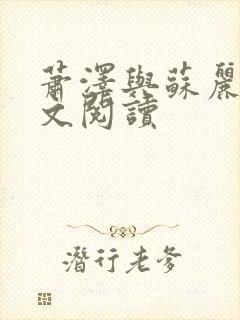 蕭澤與蘇麗
文閱讀
潛行老爹